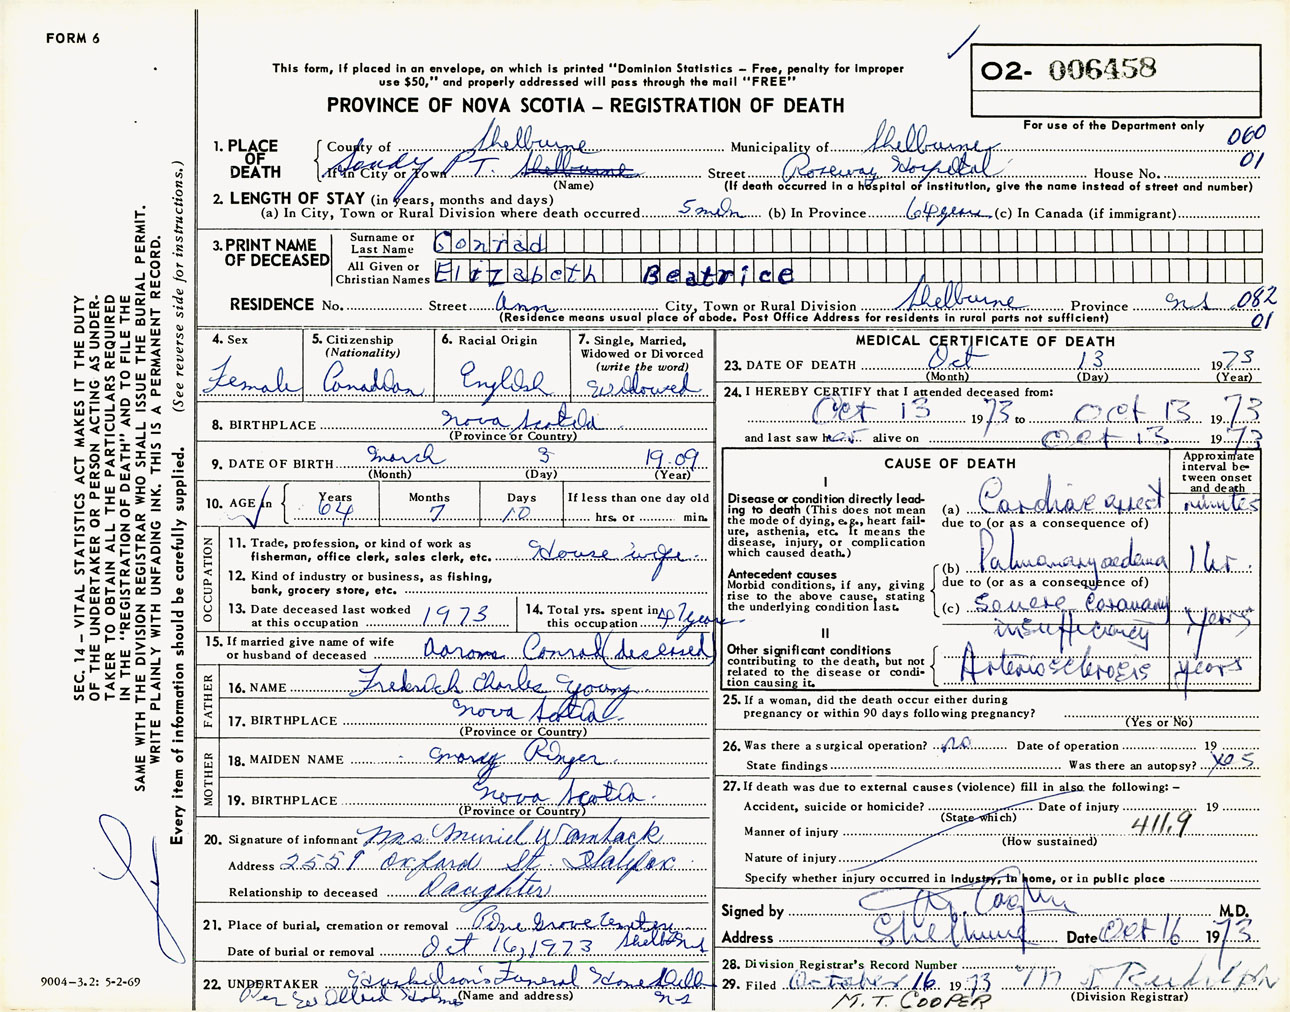 FORM 6
This form, if placed in an envelope, on which is printed "Dominion Statistics – Free, penalty for improper
use $50," and properly addressed will pass through the mail "FREE"
02- 006458
For use of the Department only
PROVINCE OF NOVA SCOTIA – REGISTRATION OF DEATH
060
01
1. PLACE OF DEATH
County of Shelburne Municipality of Shelburne
If in City or Town Sandy PT. Shelburne Street Roseway Hospital House No.
(Name) (If death occurred in a hospital or institution, give the name instead of street and number)
2. LENGTH OF STAY (in years, months and days)
(a) In City, Town or Rural Division where death occurred 5 min (b) In Province 64 years (c) In Canada (if immigrant)
3. PRINT NAME OF DECEASED
Surname or Last Name Conrad
All Given or Christian Names Elizabeth Beatrice
RESIDENCE No. Street Ann City, Town or Rural Division Shelburne Province NS 082
(Residence means usual place of abode. Post Office Address for residents in rural parts not sufficient) 01
4. Sex
Female
5. Citizenship
(Nationality)
Canadian
6. Racial Origin
English
7. Single, Married,
Widowed or Divorced
(write the word)
Widowed
8. BIRTHPLACE Nova Scotia
(Province or Country)
9. DATE OF BIRTH March 3 1909
(Month) (Day) (Year)
10. AGE in Years Months Days If less than one day old
64 7 10 hrs. or min.
OCCUPATION
11. Trade, profession, or kind of work as
fisherman, office clerk, sales clerk, etc. House wife
12. Kind of industry or business, as fishing,
bank, grocery store, etc.
13. Date deceased last worked
at this occupation 1973
14. Total yrs. spent in
this occupation 47 years
15. If married give name of wife
or husband of deceased Aarons Conrad (deceased)
FATHER
16. NAME Frederick Charles Young
17. BIRTHPLACE Nova Scotia
(Province or Country)
MOTHER
18. MAIDEN NAME Ringer
19. BIRTHPLACE Nova Scotia
(Province or Country)
20. Signature of informant Mrs Muriel Wamback
Address 2557 Oxford St. Halifax
Relationship to deceased Daughter
21. Place of burial, cremation or removal Pine Grove Cemetery
Date of burial or removal Oct 16, 1973 Shelb NS
22. UNDERTAKER Funeral Home Shelb
Per NS
(Name and address)
MEDICAL CERTIFICATE OF DEATH
23. DATE OF DEATH Oct 13 1973
(Month) (Day) (Year)
24. I HEREBY CERTIFY that I attended deceased from:
Oct 13 1973 to Oct 13 1973
and last saw her alive on Oct 13 1973
CAUSE OF DEATH
Approximate
interval be-
tween onset
and death
I
Disease or condition directly lead-
ing to death (This does not mean
the mode of dying, e.g., heart fail-
ure, asthenia, etc. It means the
disease, injury, or complication
which caused death.)
(a) Cardiac arrest minutes
due to (or as a consequence of)
Antecedent causes
Morbid conditions, if any, giving
rise to the above cause, stating
the underlying condition last.
(b) Pulmonary oedema 1 hr.
due to (or as a consequence of)
(c) Severe Coronary
insufficiency years
II
Other significant conditions
contributing to the death, but not
related to the disease or condi-
tion causing it.
Arteriosclerosis years
25. If a woman, did the death occur either during
pregnancy or within 90 days following pregnancy?
(Yes or No)
26. Was there a surgical operation? no Date of operation 19
State findings Was there an autopsy? yes
27. If death was due to external causes (violence) fill in also the following: –
Accident, suicide or homicide? Date of injury 19
(State which)
Manner of injury 411.9
(How sustained)
Nature of injury
Specify whether injury occurred in industry, in home, or in public place
Signed by M.T. Cooper M.D.
Address Shelburne Date Oct 16 1973
28. Division Registrar's Record Number
29. Filed October 16 1973
(Division Registrar)
M.T. COOPER
SEC. 14 – VITAL STATISTICS ACT MAKES IT THE DUTY
OF THE UNDERTAKER OR PERSON ACTING AS UNDER-
TAKER TO OBTAIN ALL THE PARTICULARS REQUIRED
IN THE "REGISTRATION OF DEATH" AND TO FILE THE
SAME WITH THE DIVISION REGISTRAR WHO SHALL ISSUE THE BURIAL PERMIT.
WRITE PLAINLY WITH UNFADING INK. THIS IS A PERMANENT RECORD.
Every item of information should be carefully supplied. (See reverse side for instructions.)
9004-3.2: 5-2-69